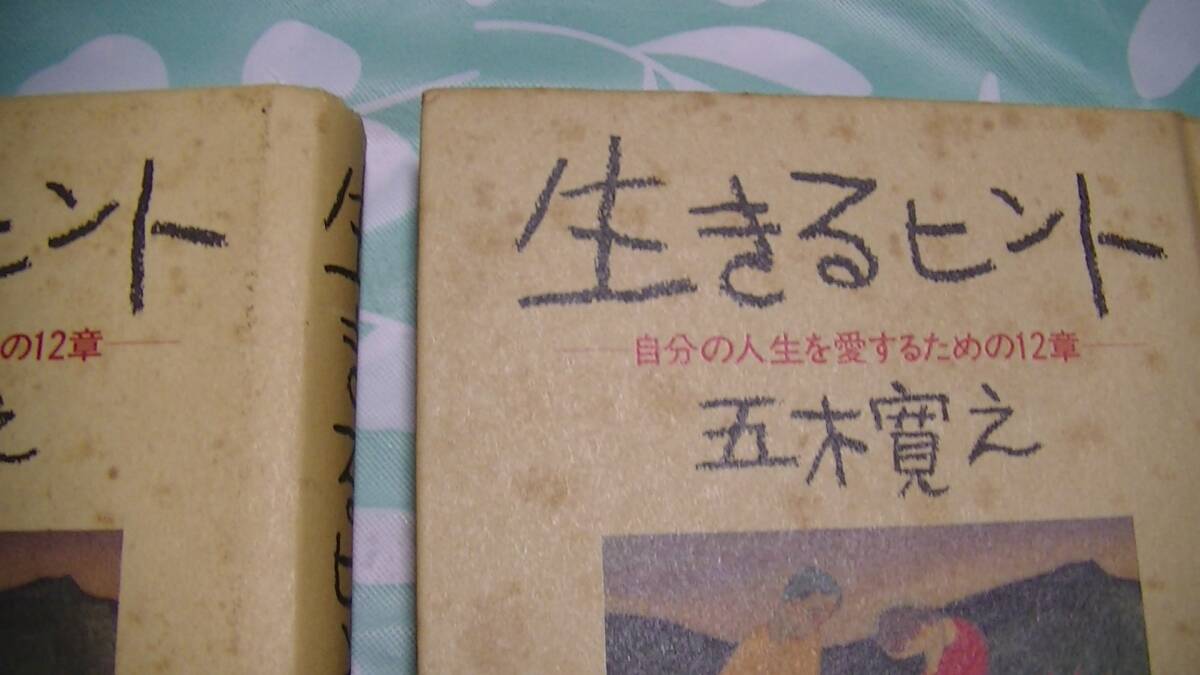 ント
の12章
え
生きるヒント
自分の人生を愛するための12章
五木寛之